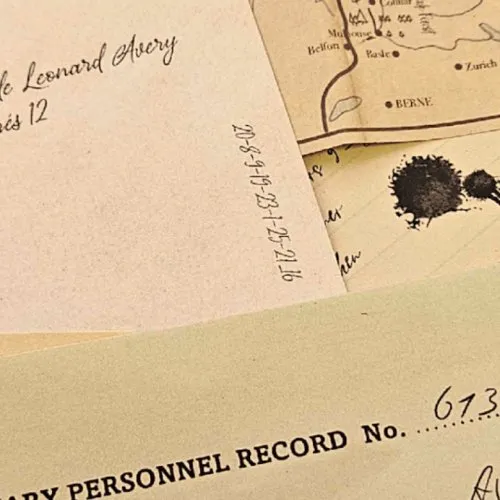 de Leonard Avery
rés 12
20-8-9-19-23-1-25-21.16
Colmar
Mulhouse
Belfort
Basle
Zurich
BERNE
ARY PERSONNEL RECORD No. 613